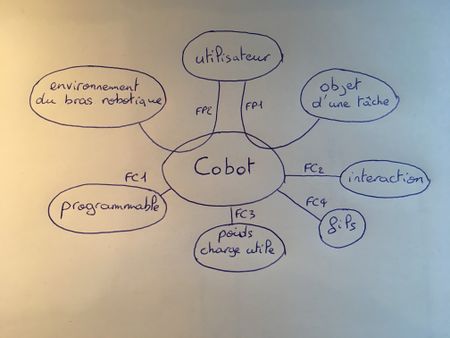 utilisateur
environnement
du bras robotique
objet
d'une tâche
FP2
FP1
Cobot
FC1
FC2
interaction
programmable
FC3
FC4
poids
charge utile